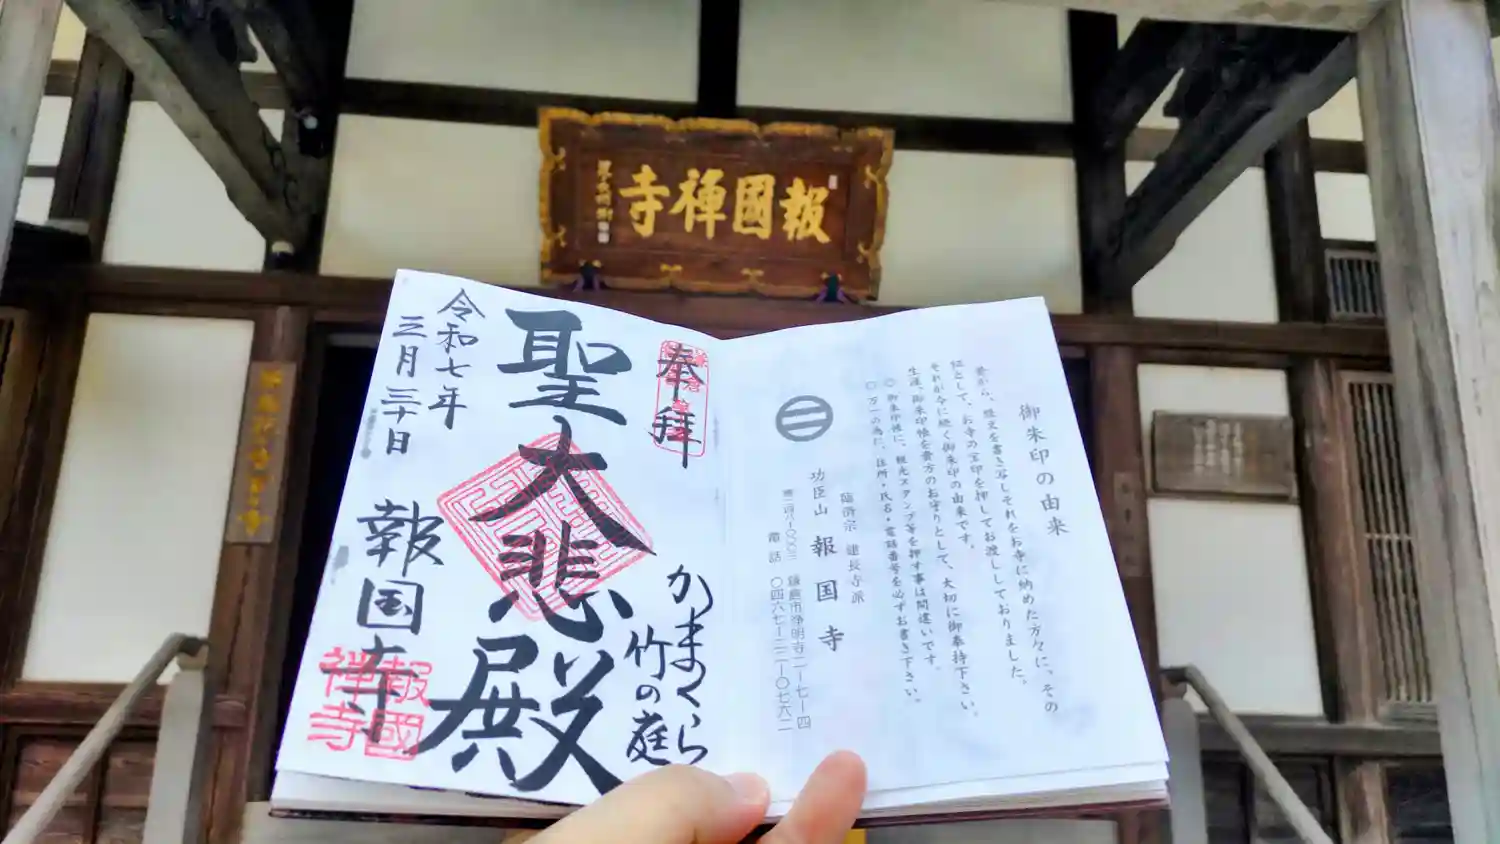 報國禅寺
奉拝
かまくら
竹の庭
聖大悲殿
令和七年
三月三十日
報国寺
報國
禅寺
御朱印の由来
昔から、経文を書き写しそれをお寺に納めた方々に、その
証として、お寺の宝印を押してお渡ししておりました。
それが今に続く御朱印の由来です。
生涯、御朱印帳を貴方のお守りとして、大切に御奉持下さい。
○御朱印帳に、観光スタンプ等を押す事は間違いです。
○万一の為に、住所・氏名・電話番号を必ずお書き下さい。
臨済宗 建長寺派
功臣山 報国寺
鎌倉市浄明寺二ー七ー四
電話 〇四六七ー二二ー〇七六二